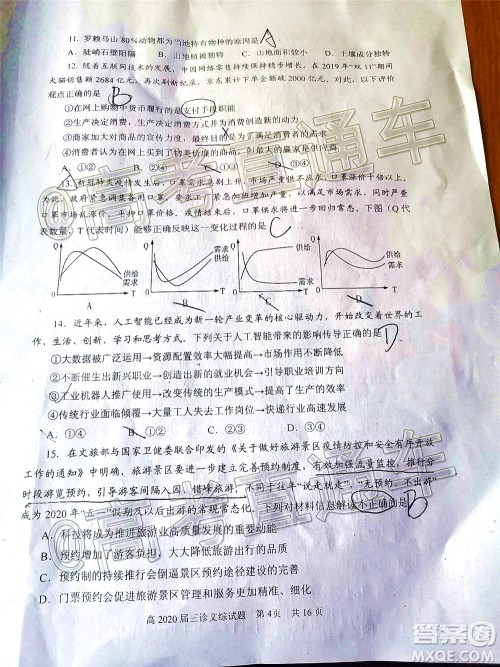 11. 罗赖马山80%动物都为当地特有物种的原因是 A
A. 陡峭石壁阻隔 B. 山地植被独特 C. 山地面积较小 D. 土壤成分独特
12. 随着互联网技术的发展，网购市场日益火爆。在2019年“双11”期间
天猫销售额2684亿元，再次刷新纪录，京东累计下单金额突破2000亿元。对此，以下评价
观点正确的是 B
①在网上购物中货币履行的是支付手段职能
②生产决定消费，生产决定消费方式并为消费创造新的动力
③商家加大对商品的宣传力度，最终目的是为了满足消费者的需求
④消费者认为在网上买到了物美价廉的商品，但真正的赢家是供应商
A. ①② B. ②④ C. ①③ D. ③④
13. 新冠肺炎疫情发生后，口罩需求急剧上升，口罩市场乱涨价，口罩涨价十倍以上。为
此，政府紧急
口罩市场乱涨价，口罩价格
，疫情结束后，口罩供求将会持续。下图（Q代
表数量，T代表时间）能够正确反映这一变化过程的是 C
Q 供给 需求 T A
Q 需求 供给 T B
Q 供给 需求 T C
Q 供给 需求 T D
14. 近年来，人工智能已经成为新一轮产业变革的核心驱动力，开始改变着世界的工
作、生活、创新、学习和思考方式，下列关于人工智能带来的影响传导正确的是 D
①大数据被广泛运用→资源配置效率大幅提高→市场作用不断降低
②不断催生出新兴职业→创造出新的就业岗位→引导职业培训方向
③工业机器人推广使用→改变传统的生产模式→提高了生产效率
④传统行业全面倾覆→大量工人失去工作→劳动力成本大幅降低
A. ①④ B. ①③ C. ②④ D. ②③
15. 在文旅部与国家卫健委联合印发的《关于做好旅游景区疫情防控和安全有序开放
工作的通知》中明确，旅游景区要建立完善预约制度，有效加强流量监控，推行分
时段游览预约，引导游客间隔入园、错峰旅游。不同于往年“说走就走”，“无预约、不出游”
成为2020年“五一”假期以及后出游的常规常态化。下列对材料信息解读不正确的是 B
A. 科技将成为推进旅游业高质量发展的重要动能
B. 预约增加了游客负担，大大降低了人们旅游体验
C. 预约制的持续推行会倒逼景区预约途径建设的完善
D. 门票预约会促进旅游景区管理和服务更加精准、细化
高2020届三诊文综试题 第4页 共16页
@高考直通车
@高考直通车
作业帮
MXQE.COM